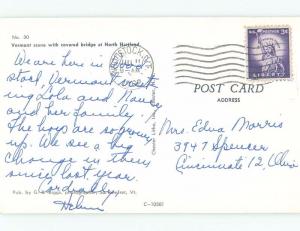 No. 30
Vermont scene with covered bridge at North Hartland
We are here in Wood-
stock, Vermont visit-
ing Lola and Nancy
and her family.
The boys are so grown
up. We see a big
change in them
since last year.
Cordially
Helen
WOODSTOCK
JUL 11
AM
U.S. POSTAGE 3¢
LIBERTY
POST CARD
ADDRESS
Mrs. Edna Morris
3947 Spencer
Cincinnati 12, Ohio
Pub. by G.
C-10361